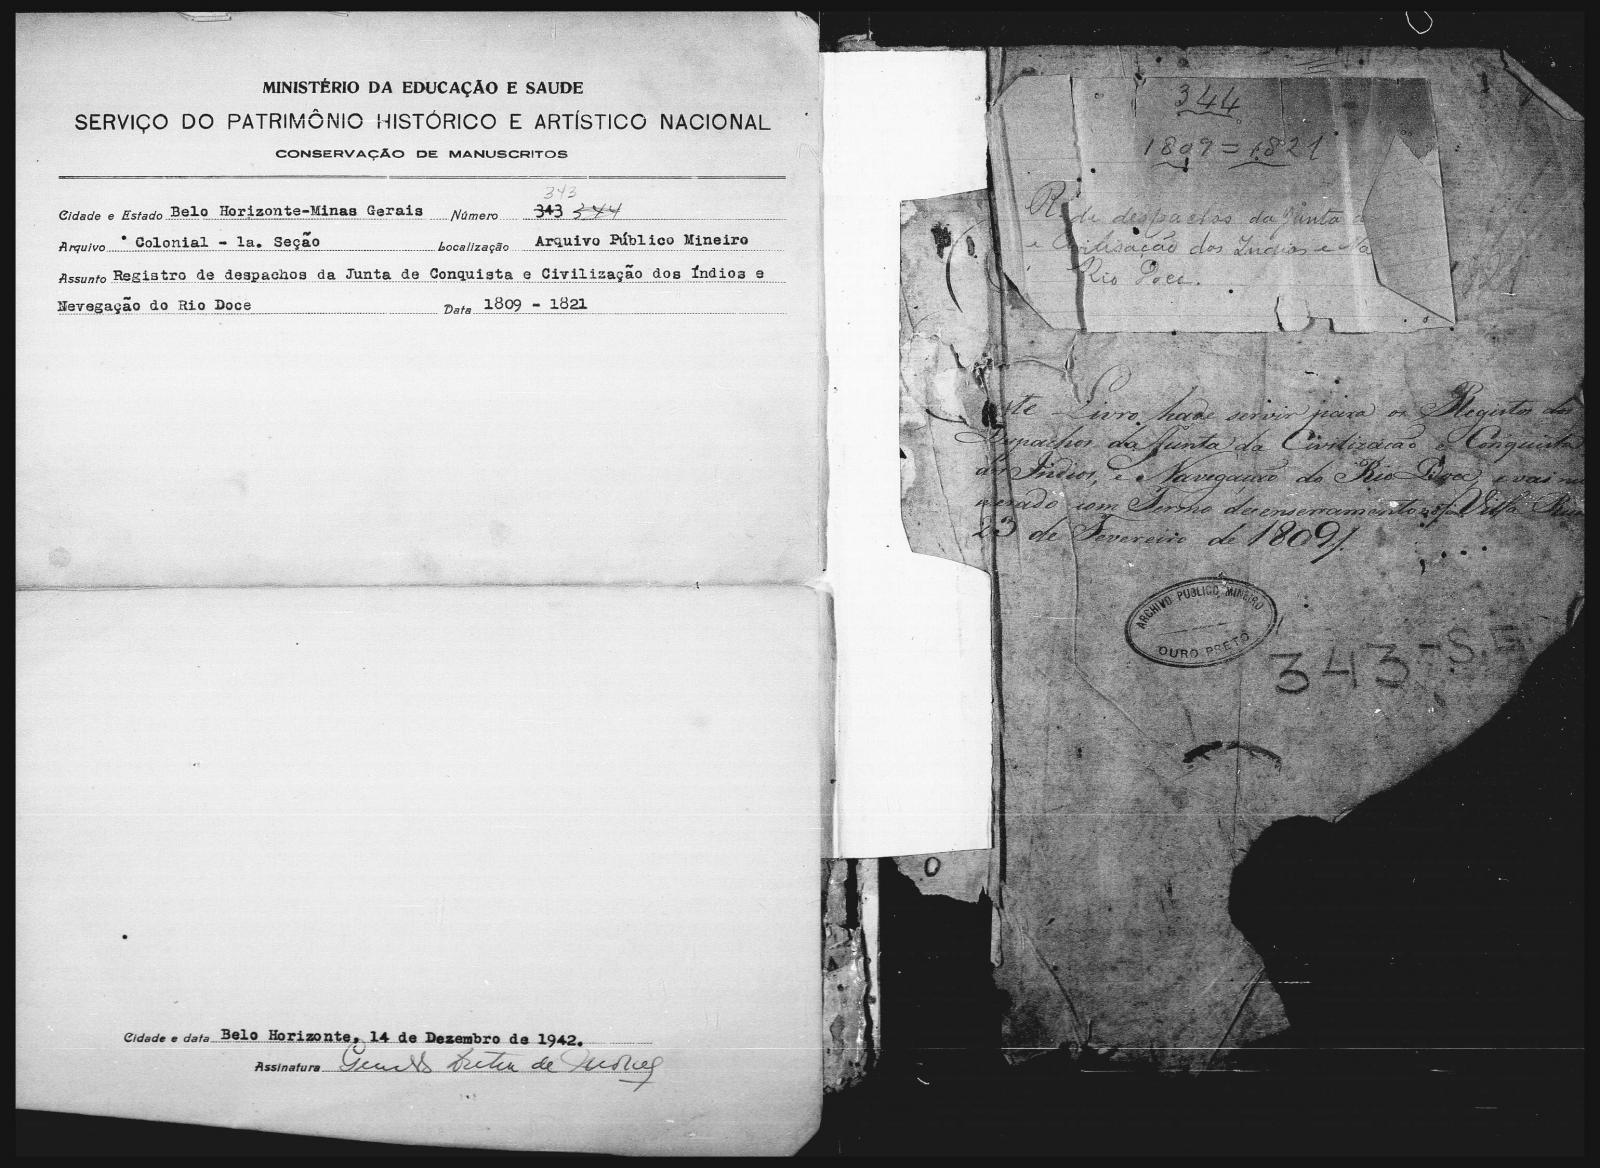 MINISTÉRIO DA EDUCAÇÃO E SAUDE
SERVIÇO DO PATRIMÔNIO HISTÓRICO E ARTÍSTICO NACIONAL
CONSERVAÇÃO DE MANUSCRITOS
343
Cidade e Estado Belo Horizonte-Minas Gerais Número 343 344
Arquivo Colonial - 1a. Seção Localização Arquivo Público Mineiro
Assunto Registro de despachos da Junta de Conquista e Civilização dos Índios e
Nevegação do Rio Doce Data 1809 - 1821
Cidade e data Belo Horizonte, 14 de Dezembro de 1942.
Assinatura
344
1809=1821
R. de despachos da Junta
e Civilisação dos Indios e Na
Rio Doce.
1821
ste Livro hade servir para os Registos dos
Despachos da Junta da Civilização e Conquista
dos Indios, e Navegação do Rio Doce, e vai nu
merado com Termo de enserramento Villa
23 de Fevereiro de 1809
ARCHIVO PUBLICO MINEIRO
OURO PRETO
343-S.